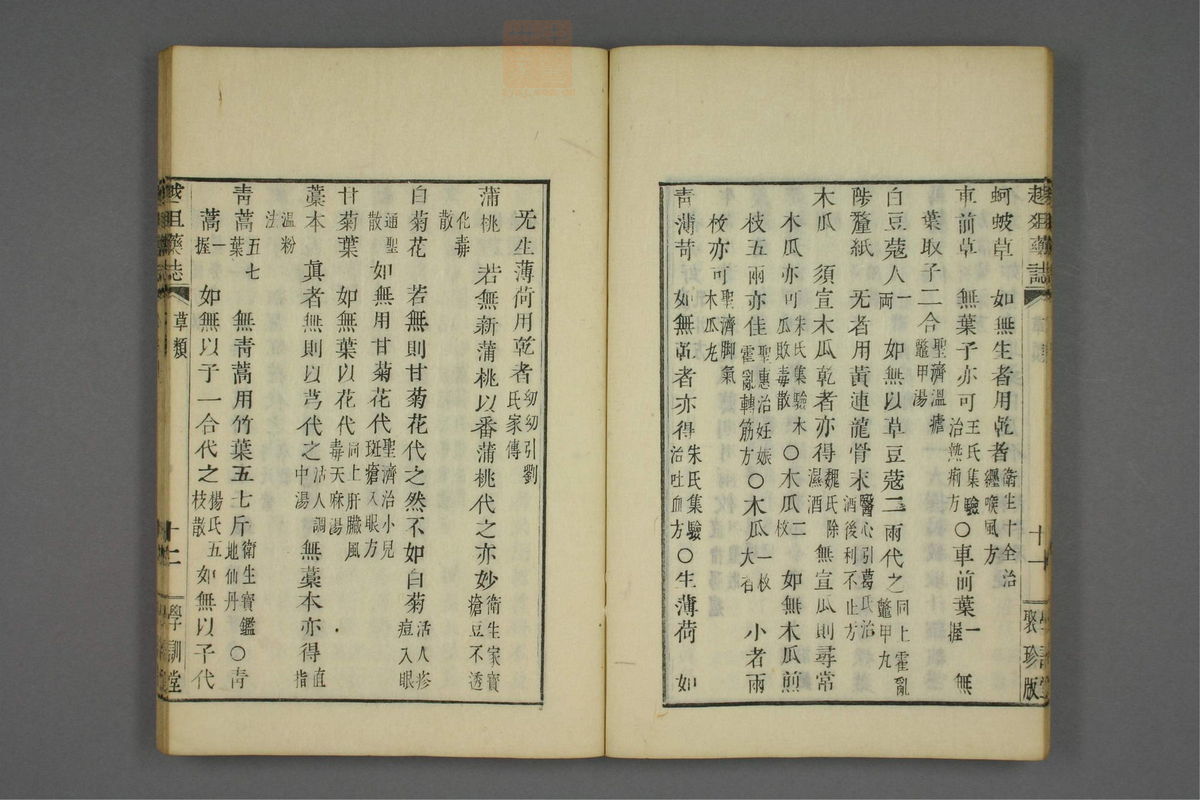 蚵蚾草　如無生者用乾者衛生十全治纏喉風方
車前草　無葉子亦可王氏集驗治熱痢方○車前葉一握　無
葉取子二合聖濟溫瘧鼈甲湯
白豆蔻人一兩　如無以草豆蔻二兩代之同上霍亂鼈甲丸
陟釐紙　无者用黃連龍骨末醫心引葛氏治酒後利不止方
木瓜　須宣木瓜乾者亦得魏氏除濕酒　無宣瓜則尋常
木瓜亦可朱氏集驗木瓜敗毒散○木瓜二枚　如無木瓜煎
枝五兩亦佳聖惠治妊娠霍亂轉筋方○木瓜一枚大者　小者兩
枚亦可聖濟脚氣木瓜丸
青薄荷　如無乾者亦得朱氏集驗治吐血方○生薄荷　如
聚珍版
十一
无生薄荷用乾者幼幼引劉氏家傳
蒲桃化毒散　若無新蒲桃以番蒲桃代之亦妙衛生家寶瘡豆不透
白菊花　若無則甘菊花代之然不如白菊活人疹痘入眼
通聖散　如無用甘菊花代聖濟治小兒斑瘡入眼方
甘菊葉　如無葉以花代同上肝臟風毒天麻湯
藁本　眞者無則以芎代之活人調中湯　無藁本亦得直指
溫粉法
青蒿葉五七　無青蒿用竹葉五七斤衛生寶鑑地仙丹○青
蒿一握　如無以子一合代之楊氏五枝散　如無以子代
草類
十二
學訓堂